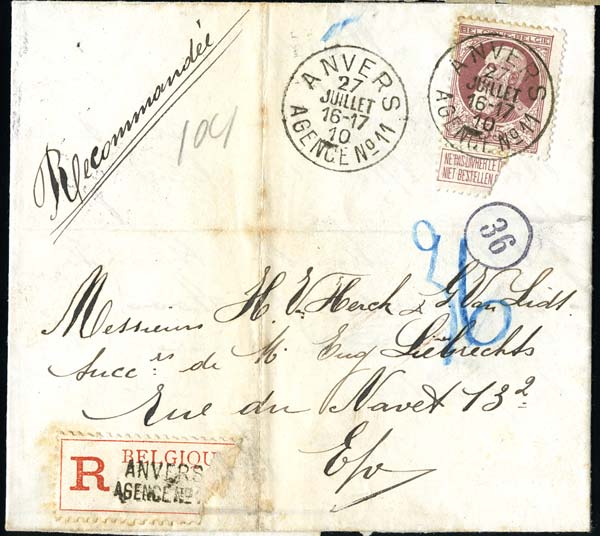 Recommandée
104
ANVERS
27
JUILLET
16-17
10
AGENCE No 11
BELGIQUE-BELGIË
ANVERS
27
JUILLET
16-17
10
AGENCE No 11
NE PAS LIVRER LE
NIET BESTELLEN
36
Messieurs H. Van Herck & G. Van Lidt.
Succrs de Mr Eug Liebrechts
Rue du Navet 13 2
E/v
R
BELGIQUE
ANVERS
AGENCE No